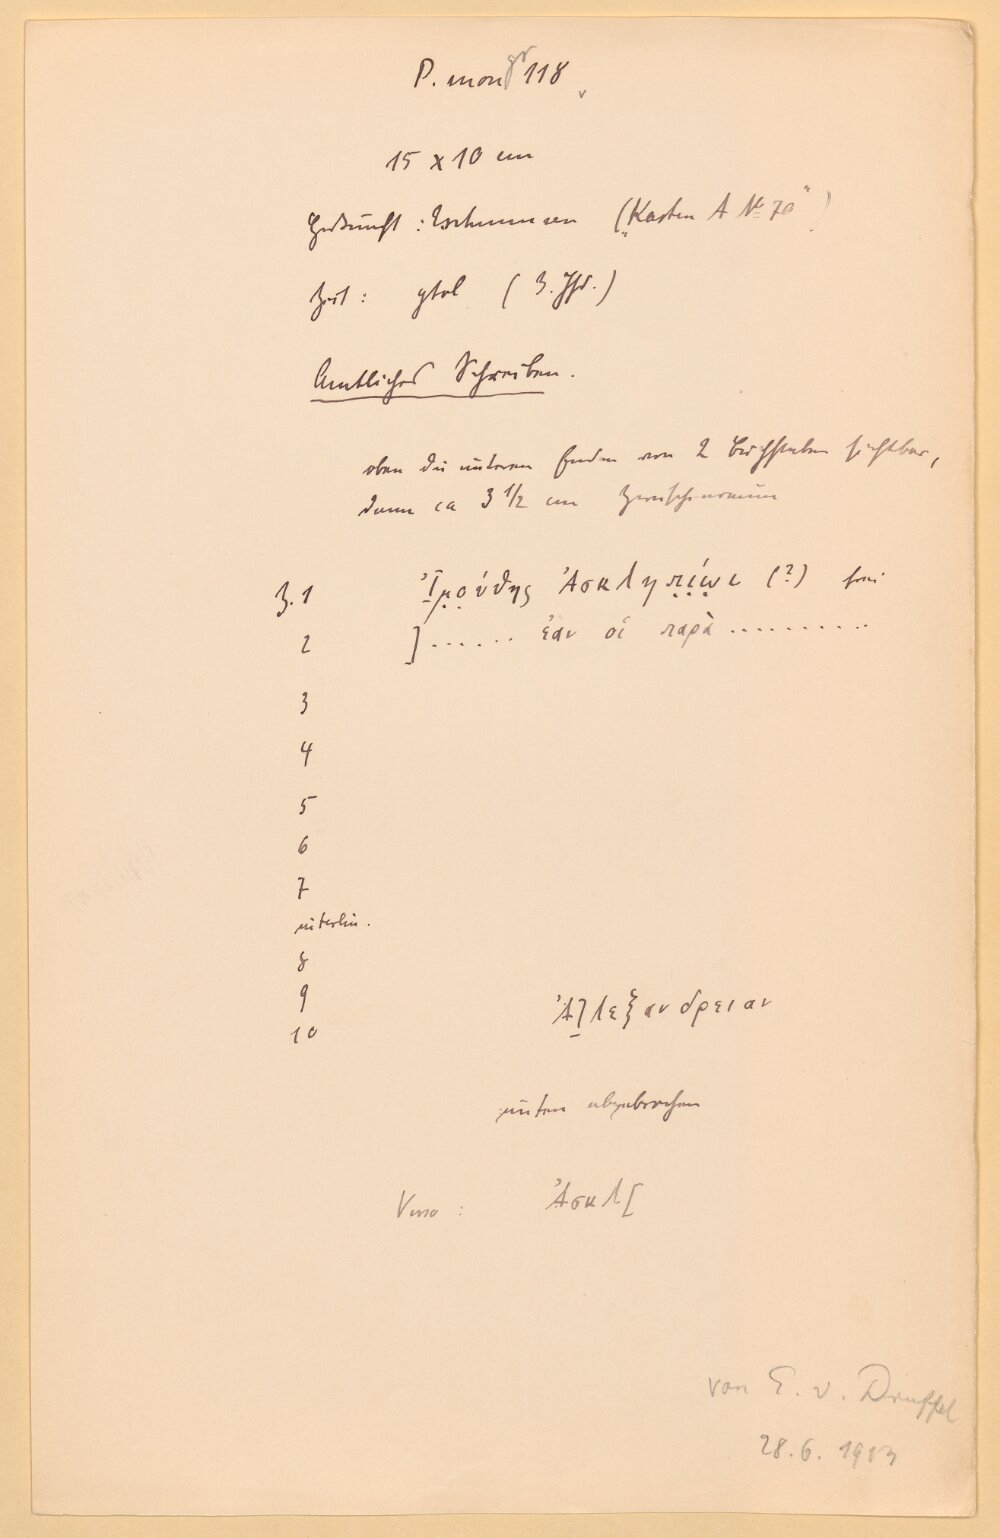 P. mon gr 118
15 x 10 cm
Herkunft : Eschmunen („Kasten A № 70“)
Zeit : ptol (3. Jhd.)
Amtliches Schreiben.
oben die unteren Enden von 2 Buchstaben sichtbar,
dann ca 3 1/2 cm Zwischenraum
Z. 1 Ἰ̣μ̣ο̣ύθης Ἀσκληπ̣ί̣ω̣ι (?) frei
2 ] . . . . . . ἐὰν οἱ παρὰ . . . . . . . . . .
3
4
5
6
7
interlin.
8
9 Ἀ]λεξανδρειαν
10
unten abgebrochen
Verso : Ἀσκλ[
von E. v. Druffel
28. 6. 1913